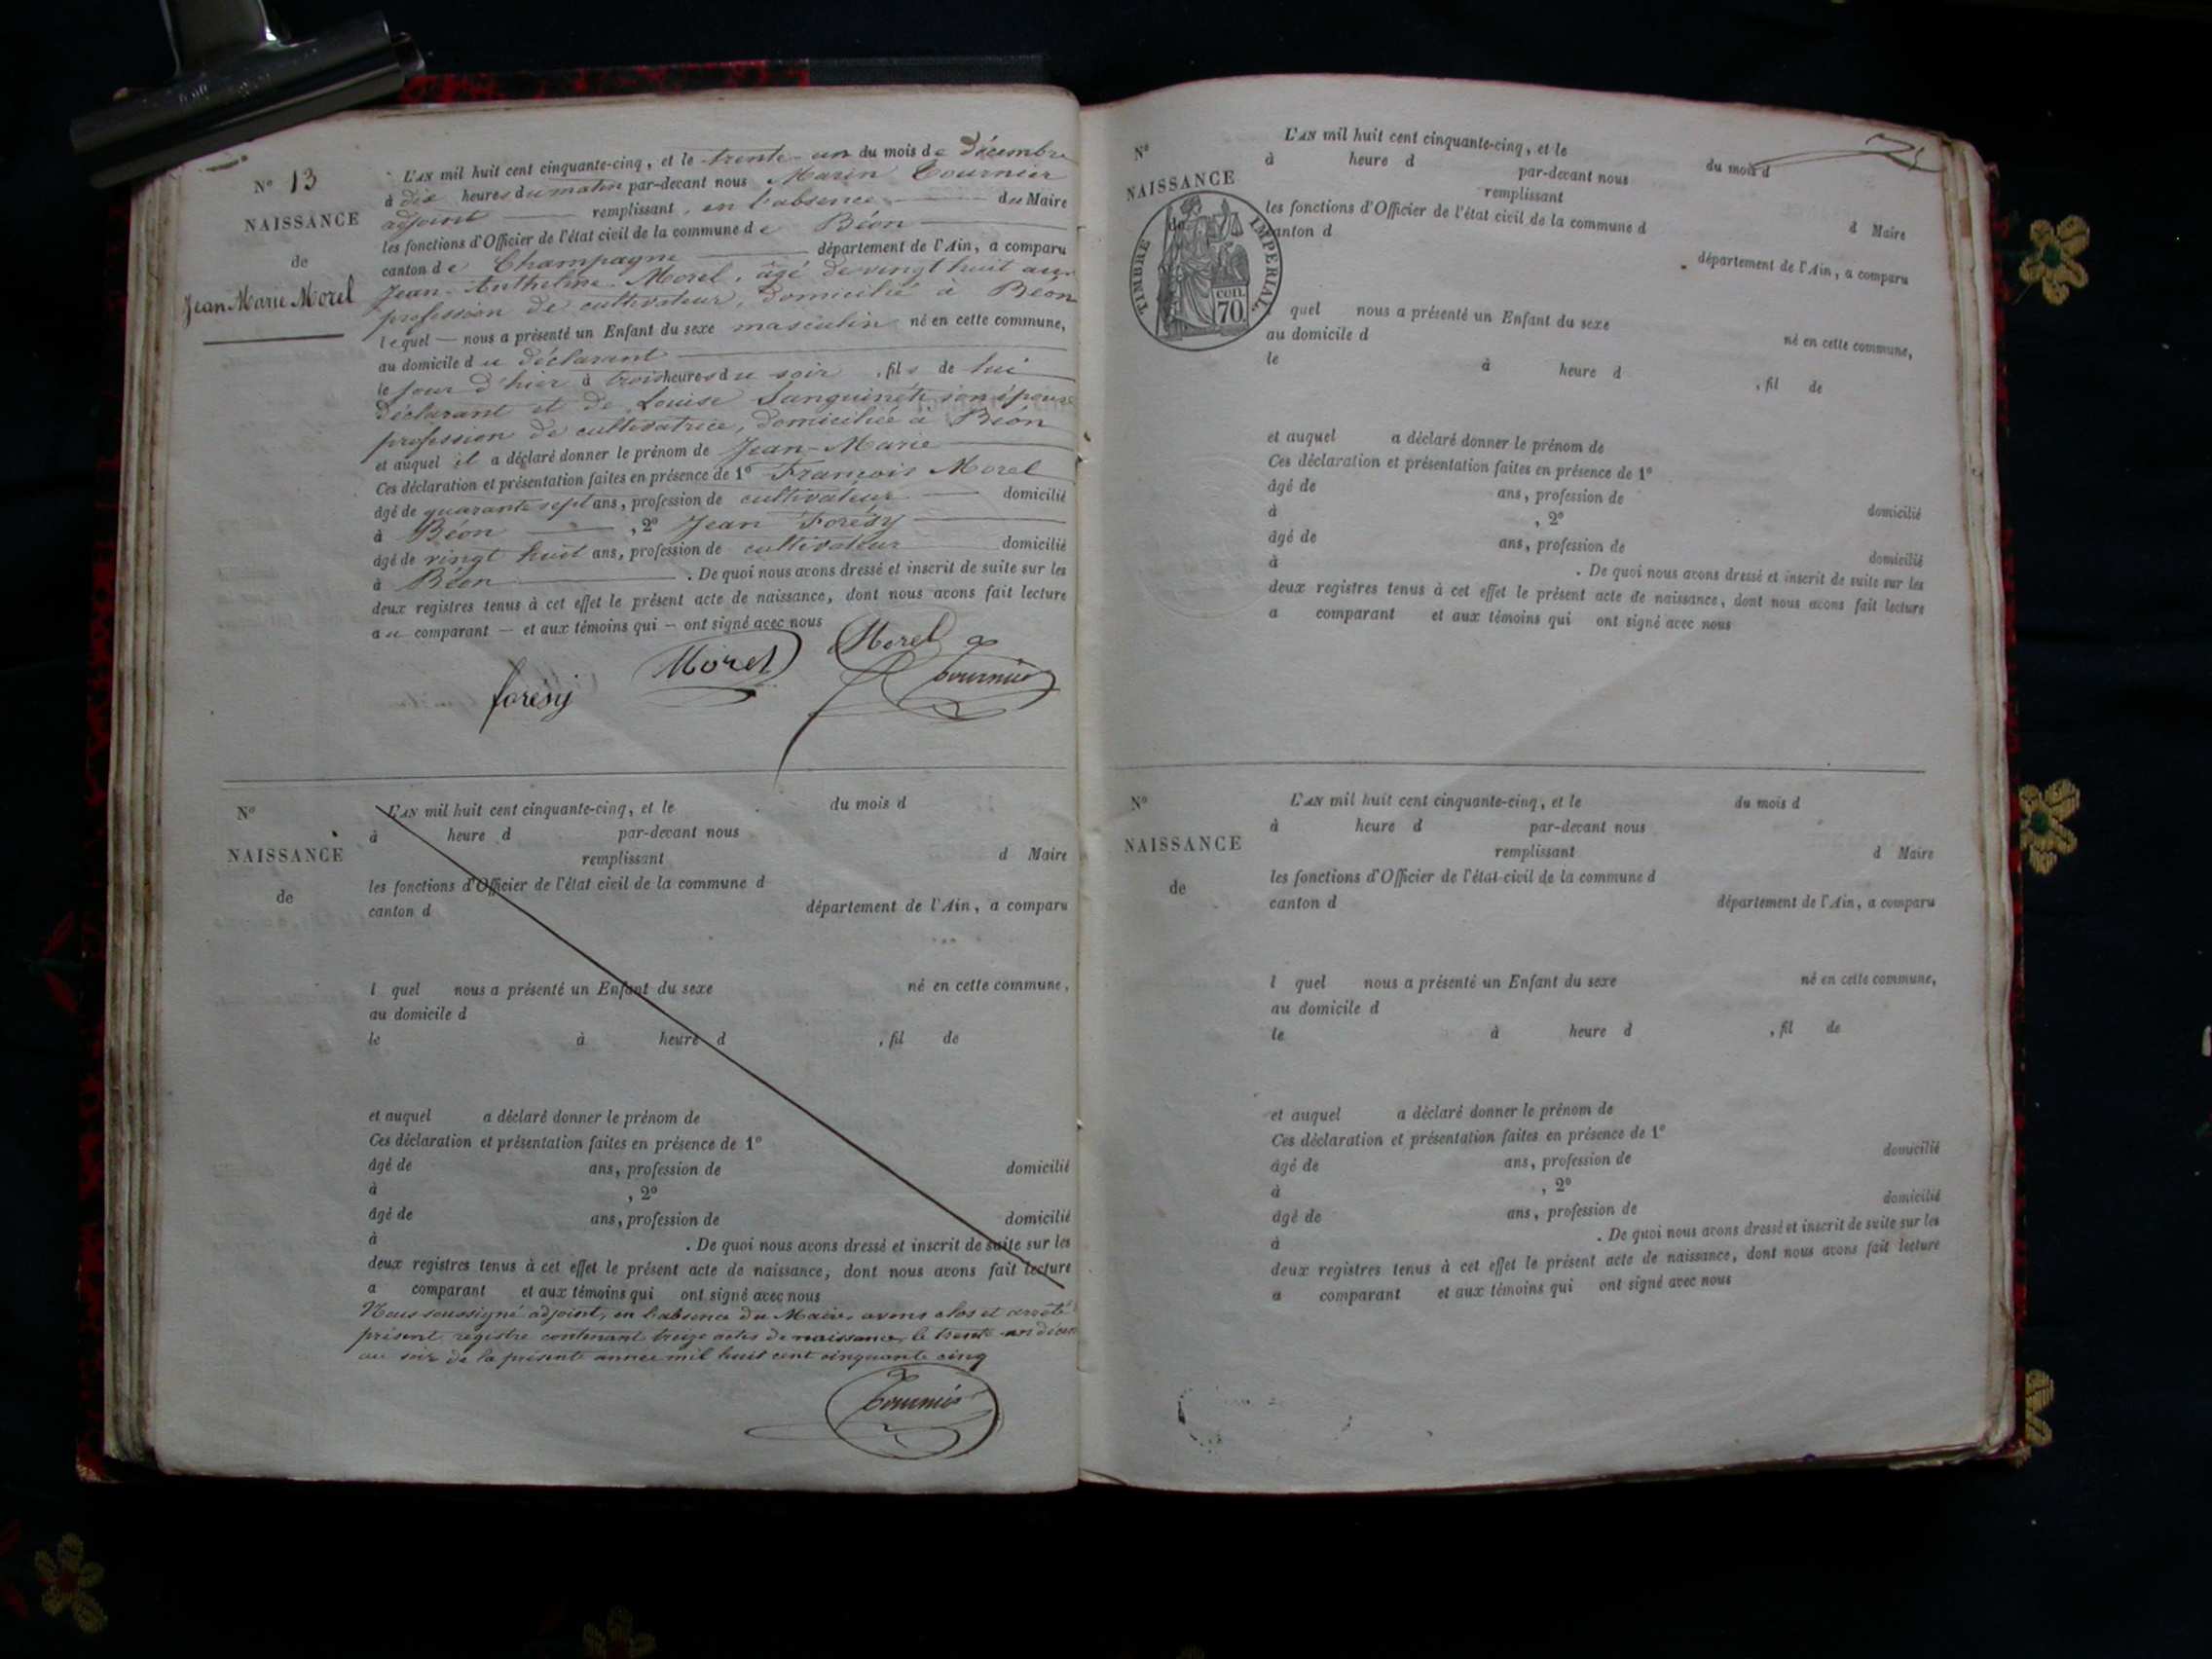 N° 13
NAISSANCE
de
Jean Marie Morel
L'AN mil huit cent cinquante-cinq, et le trente-un du mois de décembre
à dix heures du matin par-devant nous Marin Tournier
adjoint remplissant, en l'absence du Maire
les fonctions d'Officier de l'état civil de la commune de Béon
canton de Champagne département de l'Ain, a comparu
Jean-Anthelme Morel, âgé de vingt huit ans
profession de cultivateur, domicilié à Béon
lequel — nous a présenté un Enfant du sexe masculin né en cette commune,
au domicile du déclarant
le jour d'hier à trois heures du soir, fils de lui
déclarant et de Louise Sanguinéti son épouse
profession de cultivatrice, domiciliée à Béon
et auquel il a déclaré donner le prénom de Jean-Marie
Ces déclaration et présentation faites en présence de 1° François Morel
âgé de quarante sept ans, profession de cultivateur — domicilié
à Béon — , 2° Jean Forésy
âgé de vingt huit ans, profession de cultivateur domicilié
à Béon . De quoi nous avons dressé et inscrit de suite sur les
deux registres tenus à cet effet le présent acte de naissance, dont nous avons fait lecture
au comparant — et aux témoins qui — ont signé avec nous
forésy Morel Morel Tournier
N°
NAISSANCE
de
L'AN mil huit cent cinquante-cinq, et le du mois d
à heure d par-devant nous
remplissant d Maire
les fonctions d'Officier de l'état civil de la commune d
canton d département de l'Ain, a comparu
l quel nous a présenté un Enfant du sexe né en cette commune,
au domicile d
le à heure d , fil de
et auquel a déclaré donner le prénom de
Ces déclaration et présentation faites en présence de 1°
âgé de ans, profession de domicilié
à , 2°
âgé de ans, profession de domicilié
à . De quoi nous avons dressé et inscrit de suite sur les
deux registres tenus à cet effet le présent acte de naissance, dont nous avons fait lecture
a comparant et aux témoins qui ont signé avec nous
Nous soussigné adjoint, en l'absence du Maire, avons clos et arrêté
présent registre contenant treize actes de naissance, le trente-un décem
au soir de la présente année mil huit cent cinquante cinq
Tournier
N°
NAISSANCE
de
TIMBRE IMPERIAL
70 CEN.
L'AN mil huit cent cinquante-cinq, et le du mois d
à heure d par-devant nous
remplissant d Maire
les fonctions d'Officier de l'état civil de la commune d
canton d département de l'Ain, a comparu
quel nous a présenté un Enfant du sexe né en cette commune,
au domicile d
le à heure d , fil de
et auquel a déclaré donner le prénom de
Ces déclaration et présentation faites en présence de 1°
âgé de ans, profession de domicilié
à , 2°
âgé de ans, profession de domicilié
à . De quoi nous avons dressé et inscrit de suite sur les
deux registres tenus à cet effet le présent acte de naissance, dont nous avons fait lecture
a comparant et aux témoins qui ont signé avec nous
N°
NAISSANCE
de
L'AN mil huit cent cinquante-cinq, et le du mois d
à heure d par-devant nous
remplissant d Maire
les fonctions d'Officier de l'état civil de la commune d
canton d département de l'Ain, a comparu
l quel nous a présenté un Enfant du sexe né en cette commune,
au domicile d
le à heure d , fil de
et auquel a déclaré donner le prénom de
Ces déclaration et présentation faites en présence de 1°
âgé de ans, profession de domicilié
à , 2°
âgé de ans, profession de domicilié
à . De quoi nous avons dressé et inscrit de suite sur les
deux registres tenus à cet effet le présent acte de naissance, dont nous avons fait lecture
a comparant et aux témoins qui ont signé avec nous